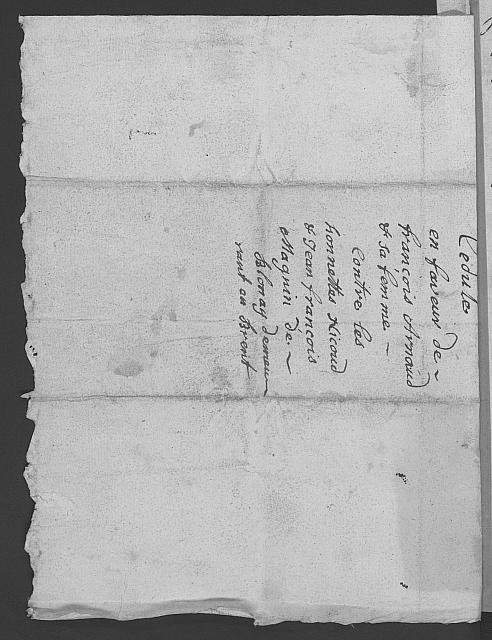 Cedule
en faveur de ~
françois Arnaud
& sa femme ~
Contre les
honnettes Nicoud
& Jean françois
Magnin de ~
Blonay demeu
rant au Brent